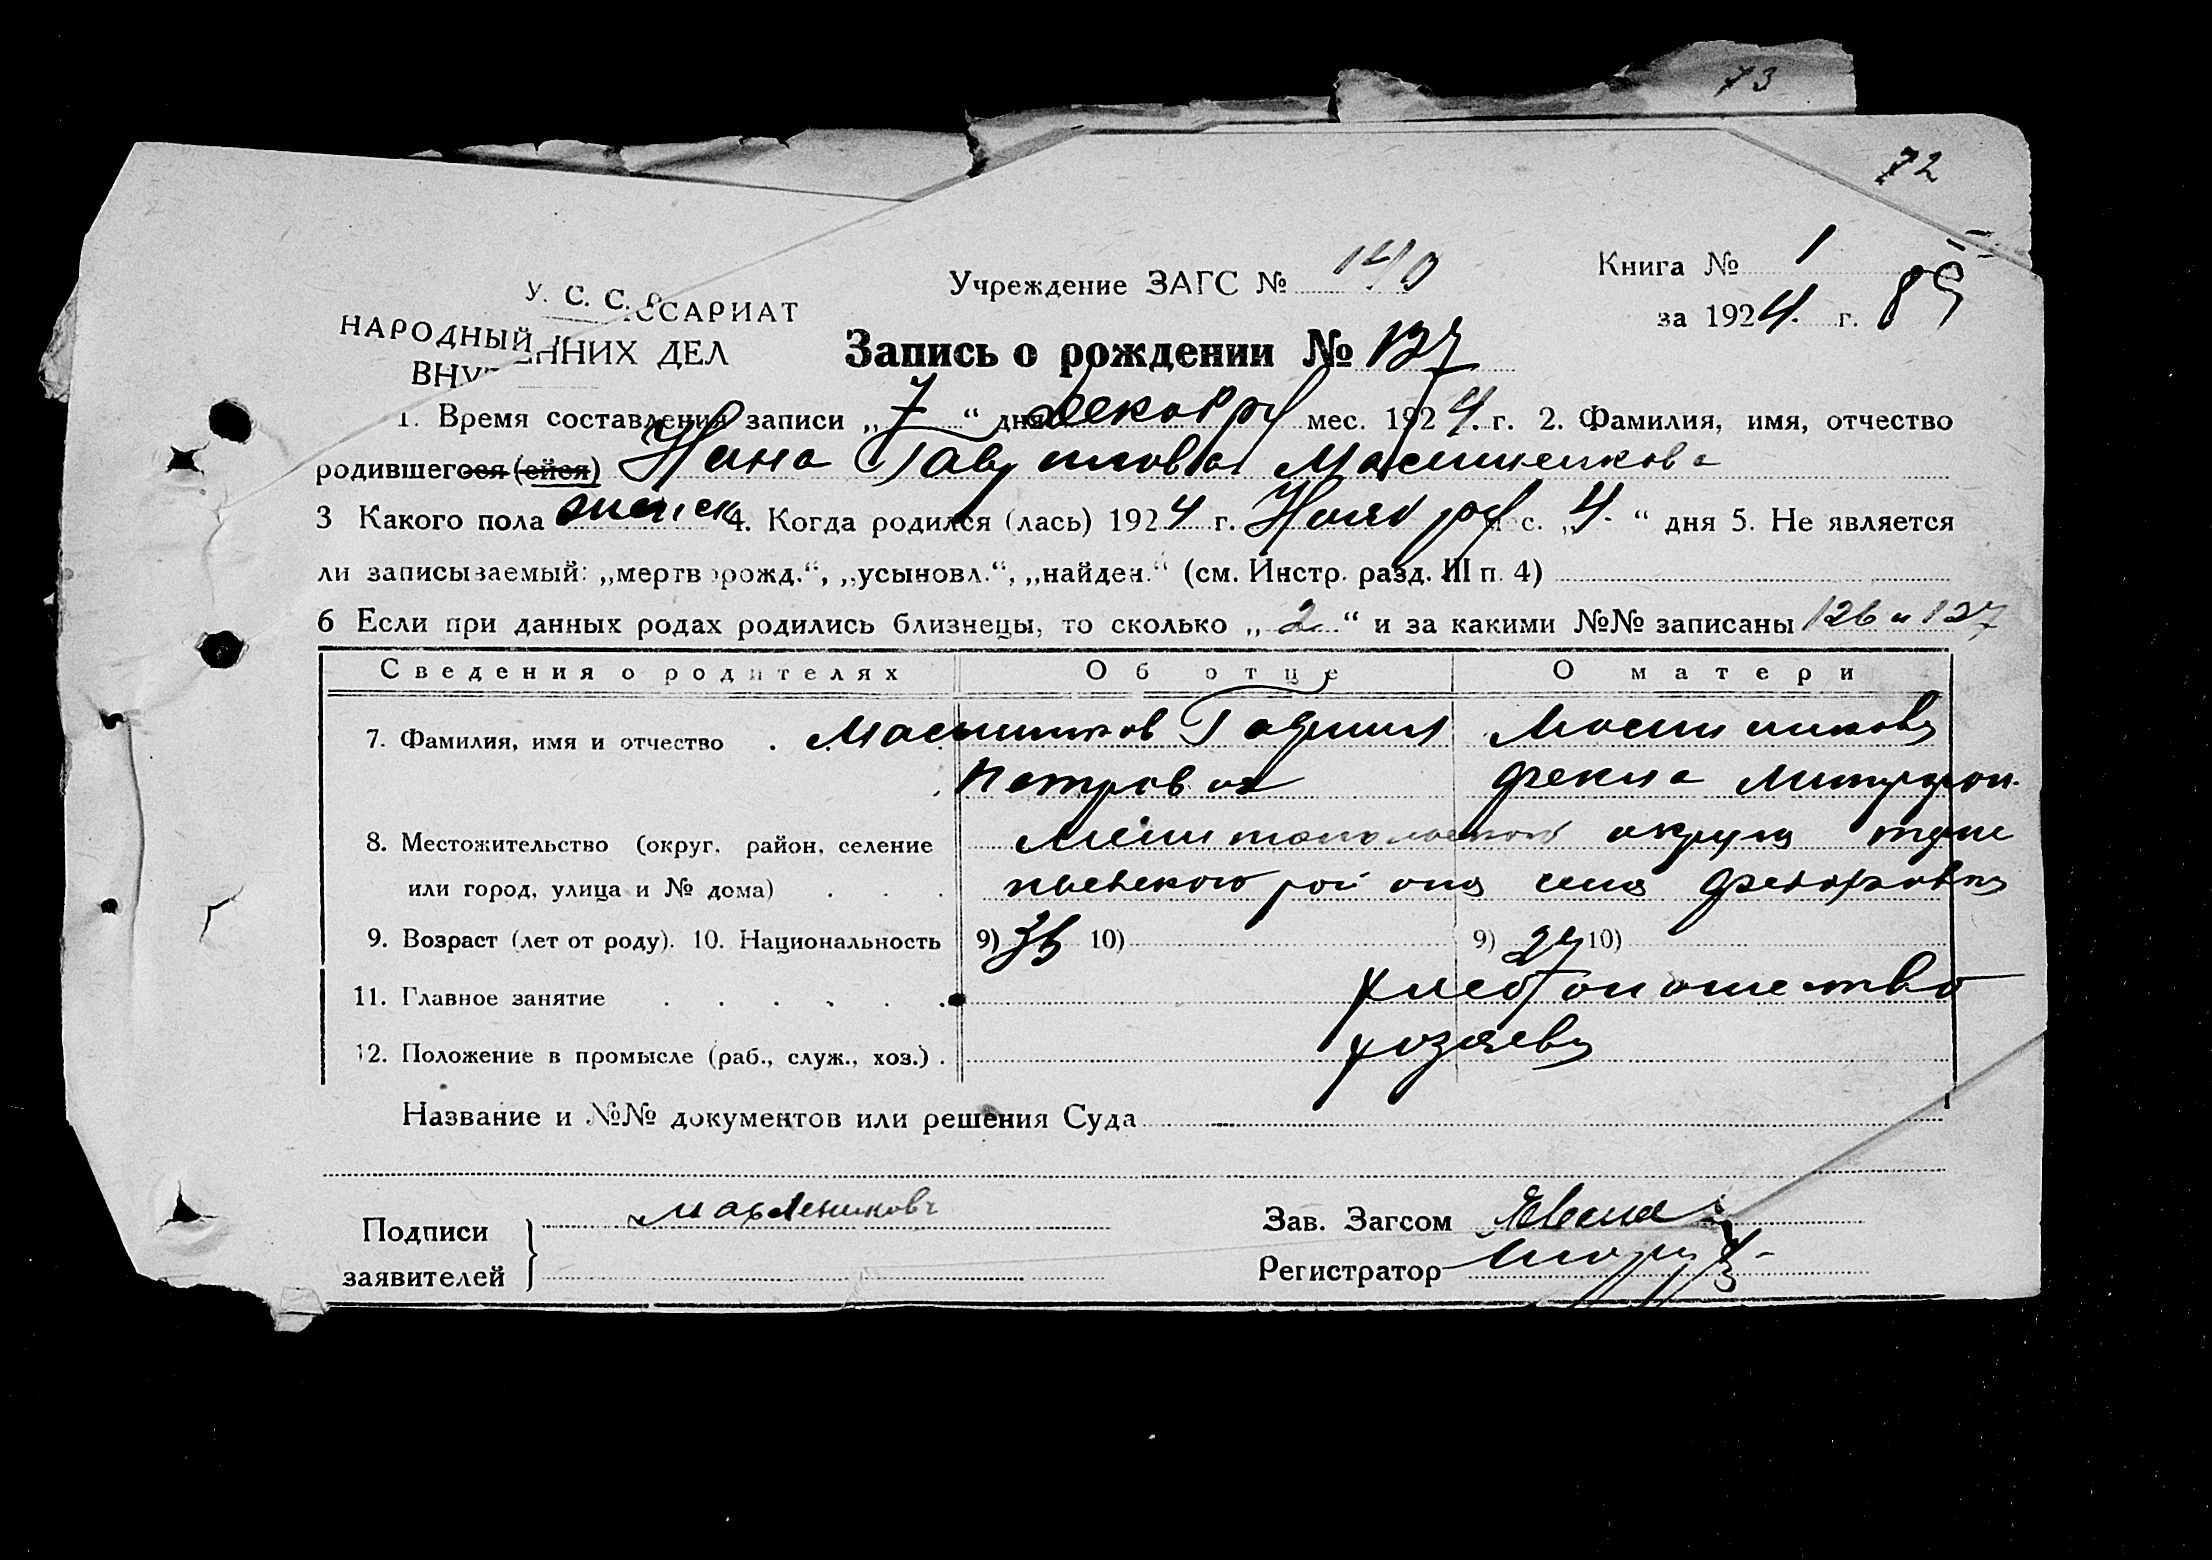 73
72
У. С. С. Р.
НАРОДНЫЙ ССАРИАТ
ВНУ ЕННИХ ДЕЛ
Учреждение ЗАГС №
Книга № 1
за 1924 г. 89
Запись о рождении № 127
1. Время составления записи „7“ дня декабря мес. 1924 г. 2. Фамилия, имя, отчество
родившегося (ейся) Нина Гавриловна Масленикова
3 Какого пола женск 4. Когда родился (лась) 1924 г. Ноября мес. „4“ дня 5. Не является
ли записываемый: „мертворожд.“, „усыновл.“, „найден.“ (см. Инстр. разд. III п. 4)
6 Если при данных родах родились близнецы, то сколько „2“ и за какими №№ записаны 126 и 127
Сведения о родителях Об отце О матери
7. Фамилия, имя и отчество . Маслеников Гаврииил Маслиникова
Петрович Фекла Митрофан.
8. Местожительство (округ, район, селение Мелитопольского округа
или город, улица и № дома) . . . района села Федоровка
9. Возраст (лет от роду). 10. Национальность 9) 36 10) 9) 27 10)
11. Главное занятие . . . . . . хлебопашество
12. Положение в промысле (раб., служ., хоз.) . хозяева
Название и №№ документов или решения Суда
Подписи Маслеников Зав. Загсом
заявителей Регистратор